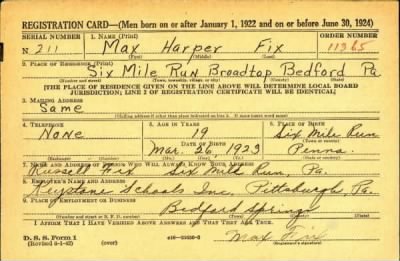 REGISTRATION CARD—(Men born on or after January 1, 1922 and on or before June 30, 1924)
SERIAL NUMBER 1. NAME (Print) ORDER NUMBER
N 211 Max Harper Fix 11365
2. PLACE OF RESIDENCE (Print)
Six Mile Run Broadtop Bedford Pa
(Number and street) (Town, township, village, or city) (County) (State)
[THE PLACE OF RESIDENCE GIVEN ON THE LINE ABOVE WILL DETERMINE LOCAL BOARD
JURISDICTION; LINE 2 OF REGISTRATION CERTIFICATE WILL BE IDENTICAL]
3. MAILING ADDRESS
Same
[Mailing address if other than place indicated on line 2. If same insert word same]
4. TELEPHONE 5. AGE IN YEARS 6. PLACE OF BIRTH
None 19 Six Mile Run
DATE OF BIRTH
Mar. 26, 1923 Penna.
7. NAME AND ADDRESS OF PERSON WHO WILL ALWAYS KNOW YOUR ADDRESS
Russell Fix Six Mile Run, Pa.
8. EMPLOYER'S NAME AND ADDRESS
Keystone Schools Inc, Pittsburgh, Pa.
9. PLACE OF EMPLOYMENT OR BUSINESS
Bedford Springs
(Number and street or R. F. D. number) (Town) (County) (State)
I AFFIRM THAT I HAVE VERIFIED ABOVE ANSWERS AND THAT THEY ARE TRUE.
D. S. S. Form 1
(Revised 6-1-42) (over) Max Fix
(Registrant's signature)